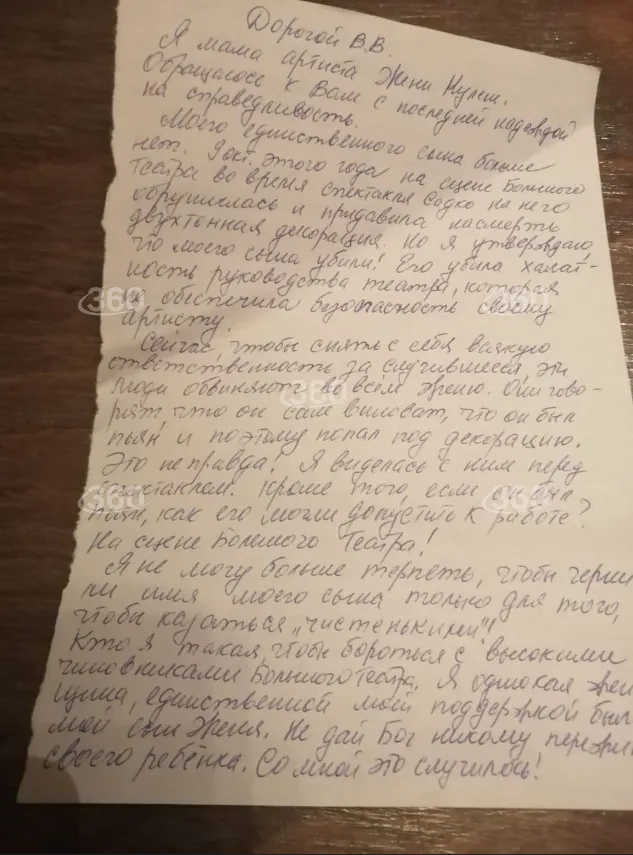 Дорогой В.В.
Я мама артиста Жени Кулеш.
Обращаюсь к Вам с последней надеждой
на справедливость.
Моего единственного сына больше
нет. 9 окт. этого года на сцене Большого
театра во время спектакля Садко на него
обрушилась и придавила насмерть
двухтонная декорация. Но я утверждаю,
что моего сына убили! Его убила халат-
ность руководства театра, которая
не обеспечила безопасность своему
артисту.
Сейчас, чтобы снять с себя всякую
ответственность за случившееся, эти
люди обвиняют во всём Женю. Они гово-
рят, что он сам виноват, что он был
пьян и поэтому попал под декорацию.
Это не правда! Я виделась с ним перед
спектаклем. Кроме того, если он был
пьян, как его могли допустить к работе?
На сцене Большого Театра!
Я не могу больше терпеть, чтобы черни
ли имя моего сына только для того,
чтобы казаться „чистенькими"!
Кто я такая, чтобы бороться с высокими
чиновниками Большого театра. Я одинокая жен
щина, единственной моей поддержкой был
мой сын Женя. Не дай Бог никому пережи
своего ребёнка. Со мной это случилось!
360
360
360
360
360